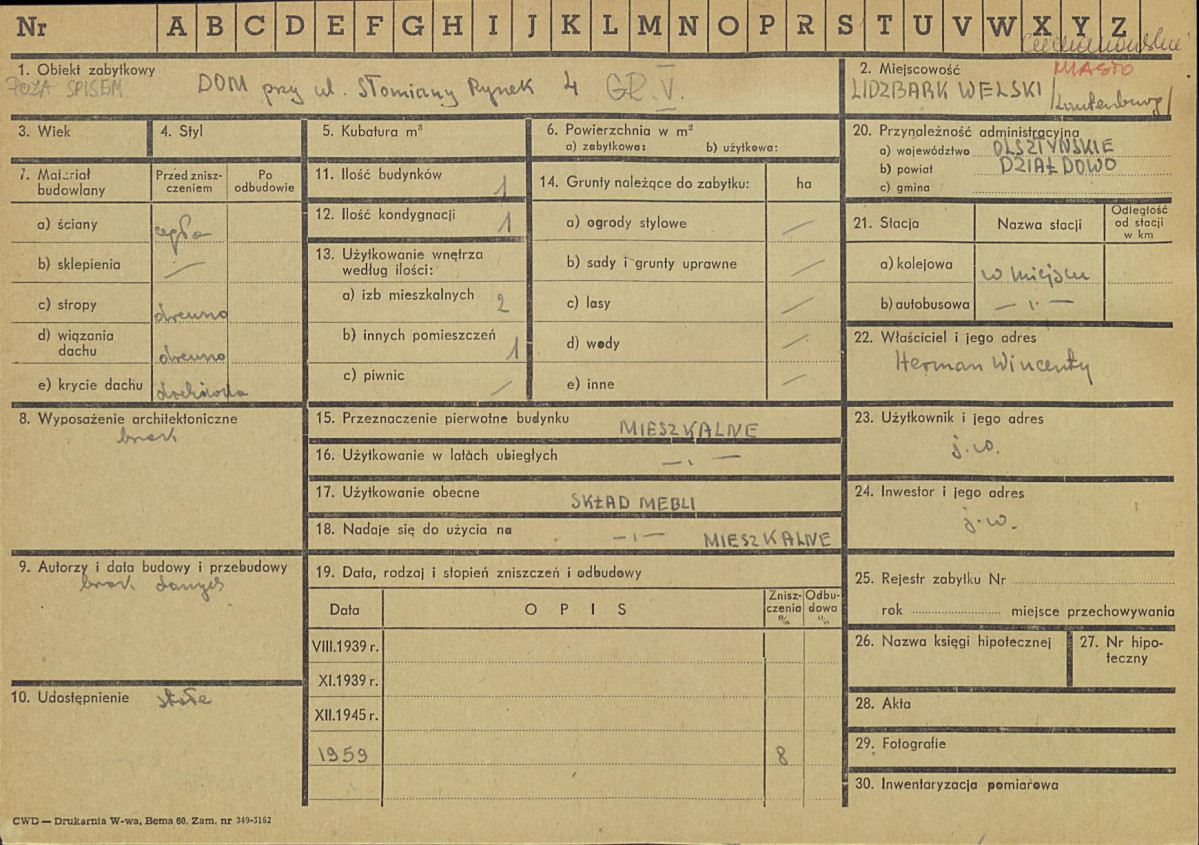 Nr A B C D E F G H I J K L M N O P R S T U V W X Y Z
1. Obiekt zabytkowy
POZA SPISEM
DOM przy ul. Słomiany Rynek 4 GR. V.
2. Miejscowość
MIASTO
LIDZBARK WELSKI /Lautenburg/
3. Wiek
4. Styl
5. Kubatura m³
6. Powierzchnia w m²
a) zabytkowa: b) użytkowa:
7. Materiał budowlany
Przed zniszczeniem
Po odbudowie
a) ściany cegła
b) sklepienia —
c) stropy drewno
d) wiązania dachu drewno
e) krycie dachu dachówka
8. Wyposażenie architektoniczne
brak
9. Autorzy i data budowy i przebudowy
brak danych
10. Udostępnienie stałe
11. Ilość budynków 1
12. Ilość kondygnacji 1
13. Użytkowanie wnętrza według ilości:
a) izb mieszkalnych 2
b) innych pomieszczeń 1
c) piwnic —
14. Grunty należące do zabytku: ha
a) ogrody stylowe —
b) sady i grunty uprawne —
c) lasy —
d) wody —
e) inne —
15. Przeznaczenie pierwotne budynku MIESZKALNE
16. Użytkowanie w latach ubiegłych —„—
17. Użytkowanie obecne SKŁAD MEBLI
18. Nadaje się do użycia na —„— MIESZKALNE
19. Data, rodzaj i stopień zniszczeń i odbudowy
Data OPIS Zniszczenia % Odbudowa %
VIII.1939 r.
XI.1939 r.
XII.1945 r.
1959 8
20. Przynależność administracyjna
a) województwo OLSZTYŃSKIE
b) powiat DZIAŁDOWO
c) gmina
21. Stacja Nazwa stacji Odległość od stacji w km
a) kolejowa w miejscu
b) autobusowa —„—
22. Właściciel i jego adres
Herman Wincenty
23. Użytkownik i jego adres
j.w.
24. Inwestor i jego adres
j.w.
25. Rejestr zabytku Nr
rok miejsce przechowywania
26. Nazwa księgi hipotecznej
27. Nr hipoteczny
28. Akta
29. Fotografie
30. Inwentaryzacja pomiarowa
CWD — Drukarnia W-wa, Bema 60. Zam. nr 349-5162